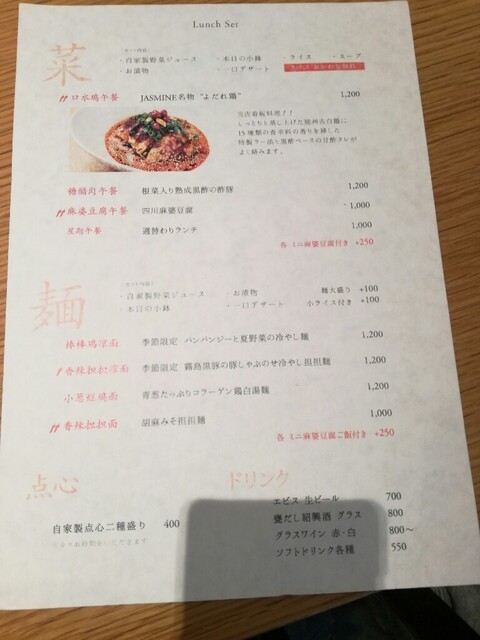 Lunch Set
菜
・自家製野菜ジュース ・本日の小鉢 ・ライス ・スープ
・お漬物 ・一口デザート
口水鶏午餐 JASMINE名物 “よだれ鶏” 1,200
当店看板料理!!
しっとりと蒸し上げた銘柄古白鶏に
15種類の香辛料の香りを移した
特製ラー油と黒酢ベースの甘酢タレが
よく絡みます。
糖醋肉午餐 根菜入り熟成黒酢の酢豚 1,200
麻婆豆腐午餐 四川麻婆豆腐 1,000
星期午餐 週替わりランチ 1,000
各 ミニ麻婆豆腐付き +250
麺
・自家製野菜ジュース ・お漬物 麺大盛り +100
本日の小鉢 ・一口デザート 小ライス付き +100
棒棒鶏涼面 季節限定 バンバンジーと夏野菜の冷やし麺 1,200
香辣担担涼面 季節限定 霧島黒豚の豚しゃぶのせ冷やし担担麺 1,200
小葱 青葱たっぷりコラーゲン鶏白湯麺 1,200
香辣担担面 胡麻みそ担担麺 1,000
各 ミニ麻婆豆腐ご飯付き +250
点心
自家製点心二種盛り 400
ドリンク
エビス 生ビール 700
甕だし紹興酒 グラス 800
グラスワイン 赤・白 800～
ソフトドリンク各種 550